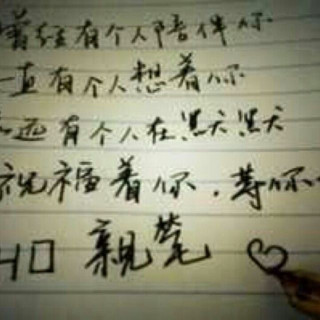 曾经有个人陪伴你
一直有个人想着你
远有个人在默默
祝福着你．等你
親笔